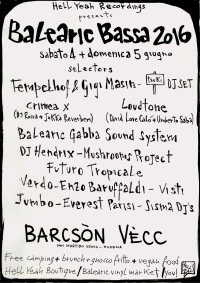 Hell Yeah Recordings
presents
Balearic Bassa 2016
sabato 4 + domenica 5 giugno
selectors
Tempelhof & Gigi Masin - DJ SET
Crimea X Loudtone
(DJ Rocca + Jukka Reverberi) (David Love Calò + Umberto Saba)
Balearic Gabba Sound System
DJ Hendrix - Mushrooms Project
Futuro Tropicale
Verdo - Enzo Baruffaldi - Visti
Jumbo - Everest Parisi - Sisma DJ's
BARCSÒN VÈCC
Free camping + brunch + gnocco fritto + vegan food
Hell Yeah Boutique / Balearic vinyl market / you!